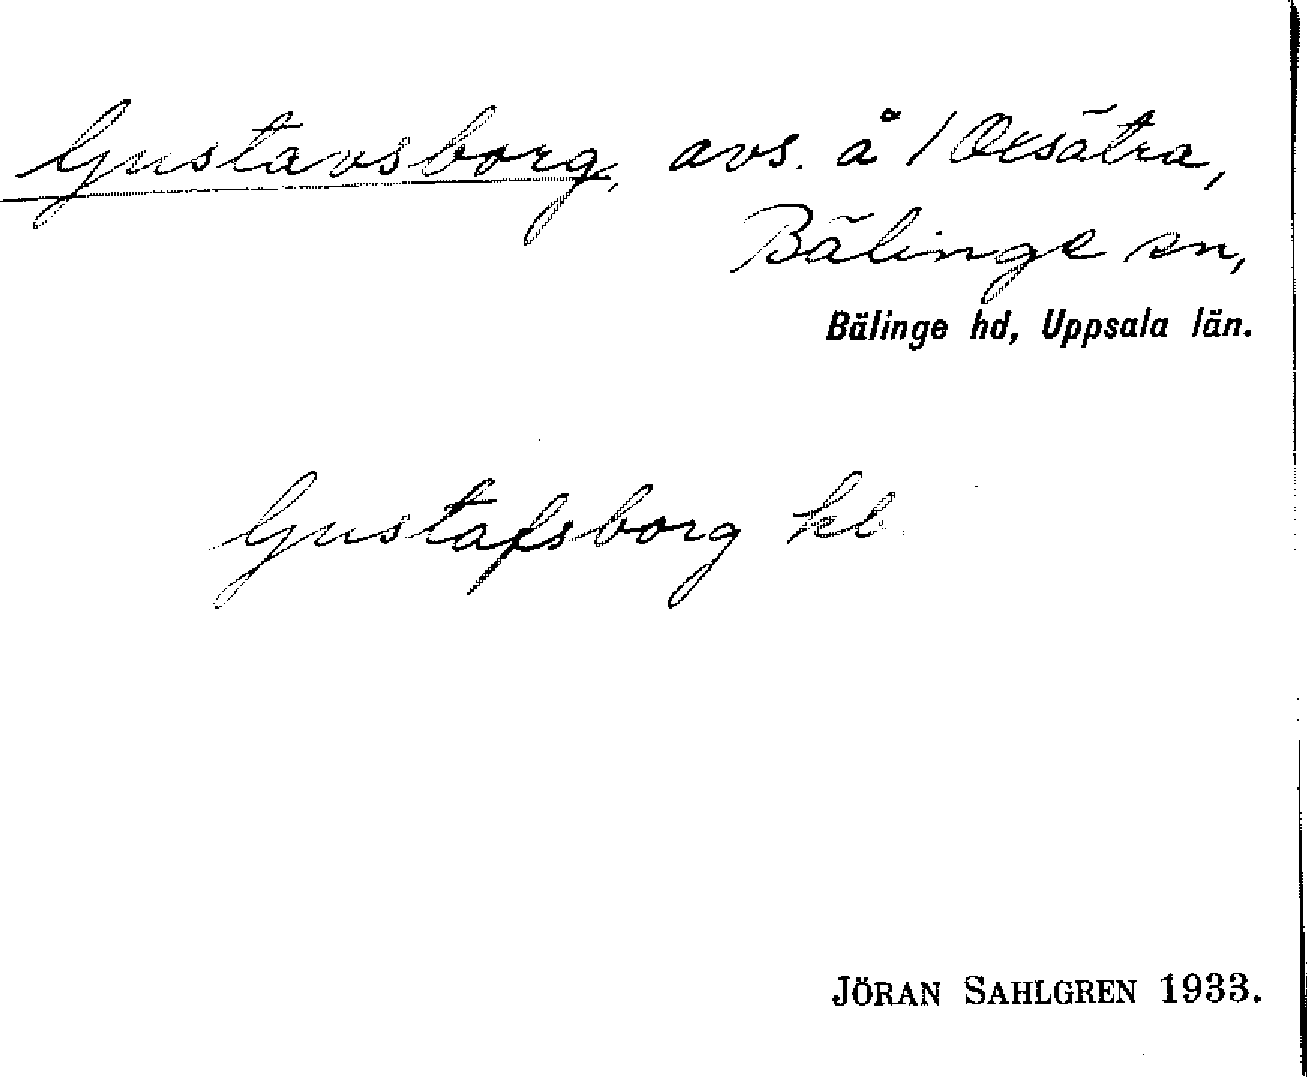 Gustavsborg, avs. å 1 Oxsätra,
Bälinge sn,
Bälinge hd, Uppsala län.
Gustafsborg kl
JÖRAN SAHLGREN 1933.